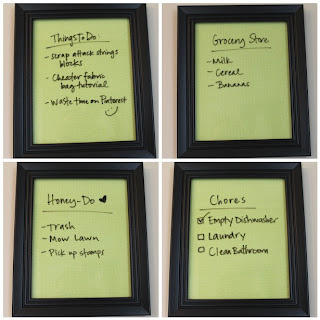 Things To Do:
- scrap attack strings
blocks
- Cheater fabric
bag tutorial
- Waste time on Pinterest
Grocery Store
- Milk
- Cereal
- Bananas
Honey-Do ♥
- Trash
- Mow Lawn
- Pick up stamps
Chores
☑ Empty Dishwasher
☐ Laundry
☐ Clean Bathroom